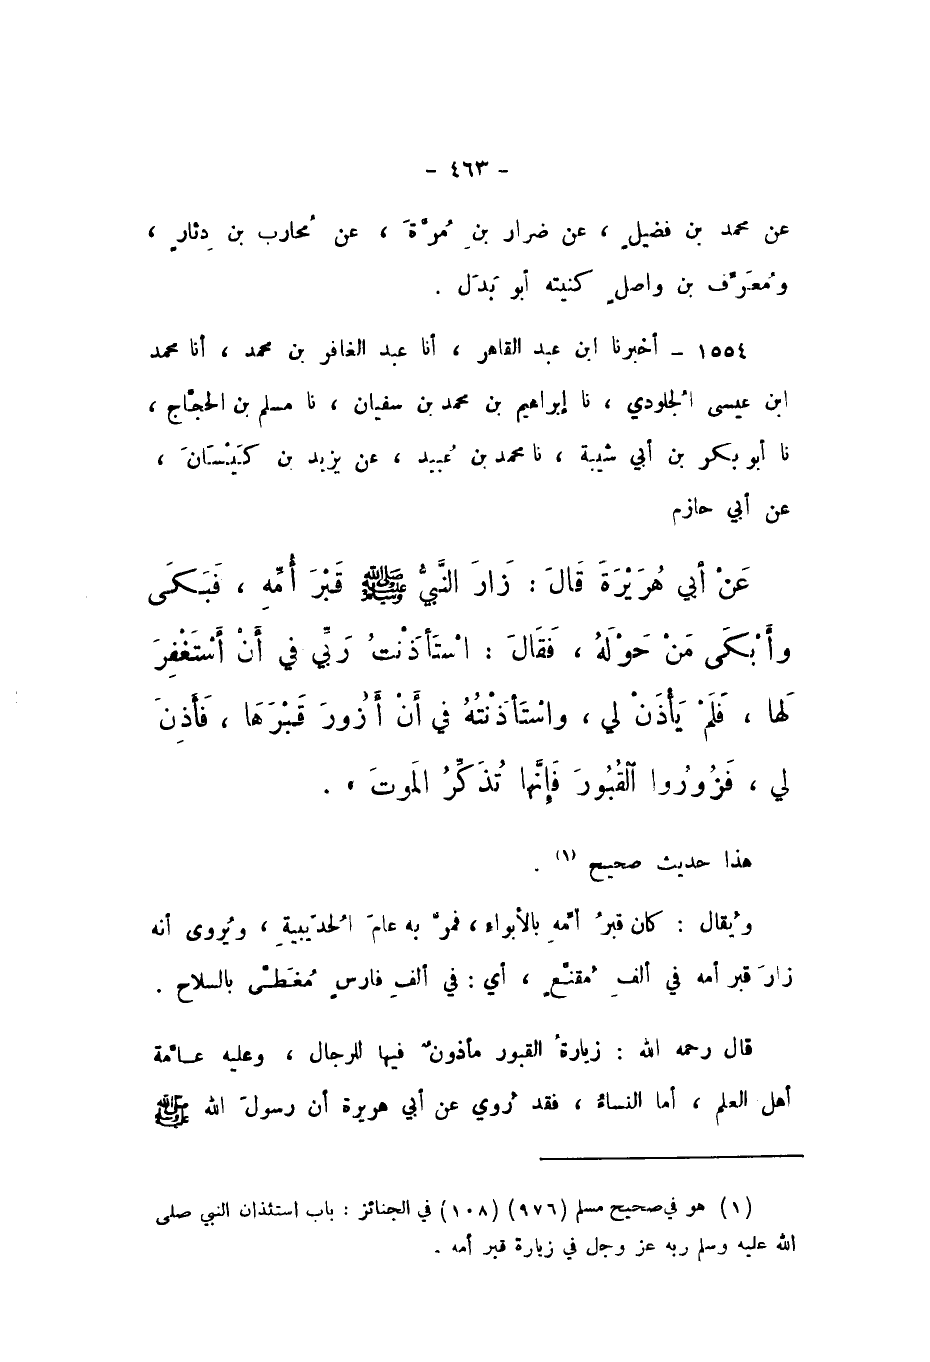 - ٤٦٣ -
عن محمد بن فضيلٍ ، عن ضرار بنِ مُرَّةَ ، عن مُحارب بن دِثارٍ ،
ومُعَرِّف بن واصلٍ كنيته أبو بَدَل .
١٥٥٤ – أخبرنا ابن عبد القاهر ، أنا عبد الغافر بن محمد ، أنا محمد
ابن عيسى الُجلودي ، نا إبراهيم بن محمد بن سفيان ، نا مسلم بن الحجّاج ،
نا أبو بكر بن أبي شيبة ، نا محمد بن عُبيد ، عن يزيد بن كَيْسَانَ ،
عن أبي حازم
عَنْ أبي هُرَيْرَةَ قَالَ : زَارَ النَّبيُّ ﷺ قَبْرَ أُمِّهِ ، فَبَكَى
وأَبْكَى مَنْ حَوْلَهُ ، فَقَالَ : اسْتَأذَنْتُ رَبِّي في أَنْ أَسْتَغْفِرَ
لَها ، فَلَمْ يَأْذَنْ لي ، واسْتَأذَنْتُهُ في أَنْ أَزُورَ قَبْرَهَا ، فَأَذِنَ
لي ، فَزُورُوا القُبُورَ فَإنَّها تُذَكِّرُ المَوتَ » .
هذا حديث صحيح (١) .
ويُقال : كان قبرُ أمِّهِ بالأبواء ، فمرَّ به عامَ الُحدَيبيةِ ، ويُروى أنه
زارَ قبر أمه في ألفِ مُقنَّعٍ ، أي : في ألفِ فارسٍ مُغَطّىً بالسلاح .
قال رحمه الله : زيارةُ القبور مأذونٌ فيها للرجال ، وعليه عامَّة
أهل العلم ، أما النساءُ ، فقد رُوي عن أبي هريرة أن رسولَ الله ﷺ
(١) هو في صحيح مسلم (٩٧٦) (١٠٨) في الجنائز : باب استئذان النبي صلى
الله عليه وسلم ربه عز وجل في زيارة قبر أمه .